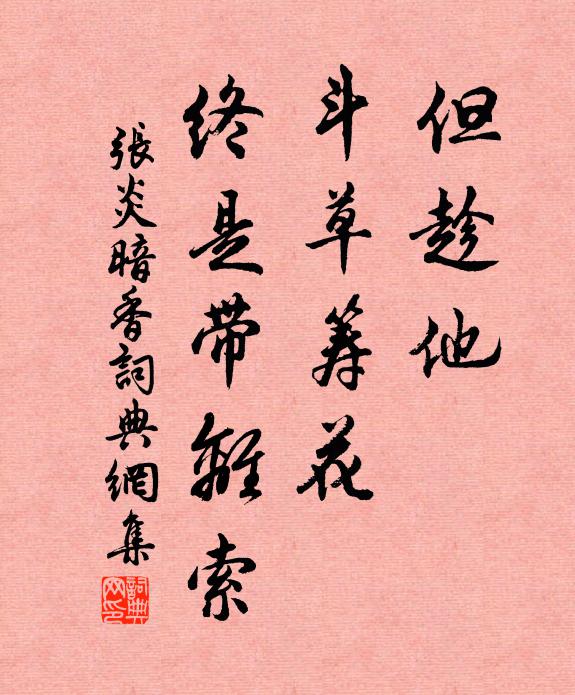 但趁他
斗草筹花
終是帶離索
張炎暗香詞典網集
詞典
网印